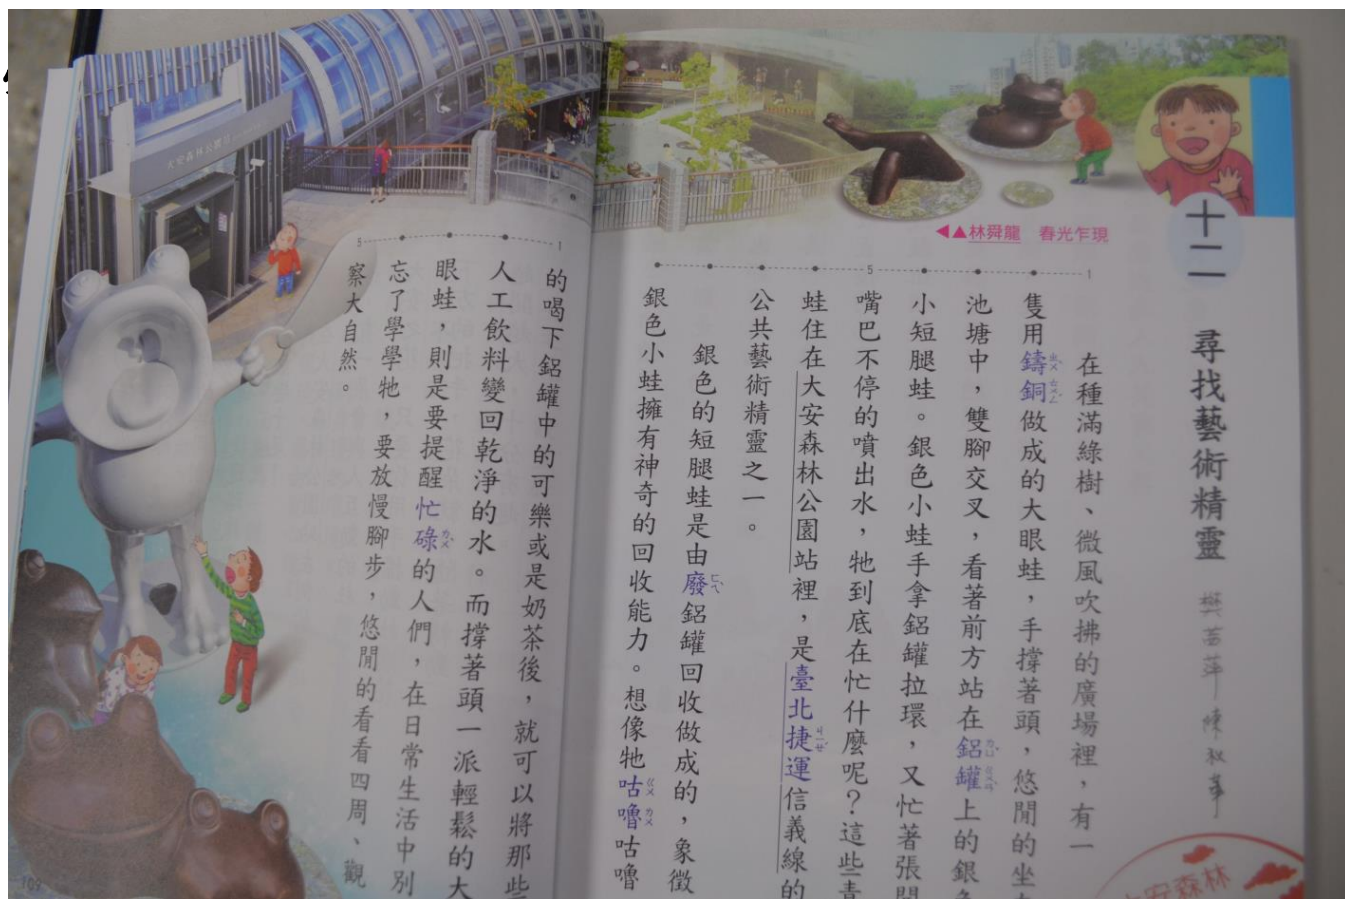 十二
尋找藝術精靈
林舜龍 春光乍現
1
5
在種滿綠樹、微風吹拂的廣場裡，有一
隻用鑄銅做成的大眼蛙，手撐著頭，悠閒的坐
池塘中，雙腳交叉，看著前方站在鋁罐上的銀
小短腿蛙。銀色小蛙手拿鋁罐拉環，又忙著張
嘴巴不停的噴出水，牠到底在忙什麼呢？這些青
蛙住在大安森林公園站裡，是臺北捷運信義線的
公共藝術精靈之一。
銀色的短腿蛙是由廢鋁罐回收做成的，象徵
銀色小蛙擁有神奇的回收能力。想像牠咕嚕咕嚕
1
5
的喝下鋁罐中的可樂或是奶茶後，就可以將那些
人工飲料變回乾淨的水。而撐著頭一派輕鬆的大
眼蛙，則是要提醒忙碌的人們，在日常生活中別
忘了學學牠，要放慢腳步，悠閒的看看四周、觀
察大自然。
大安森林公園站
安森林
109